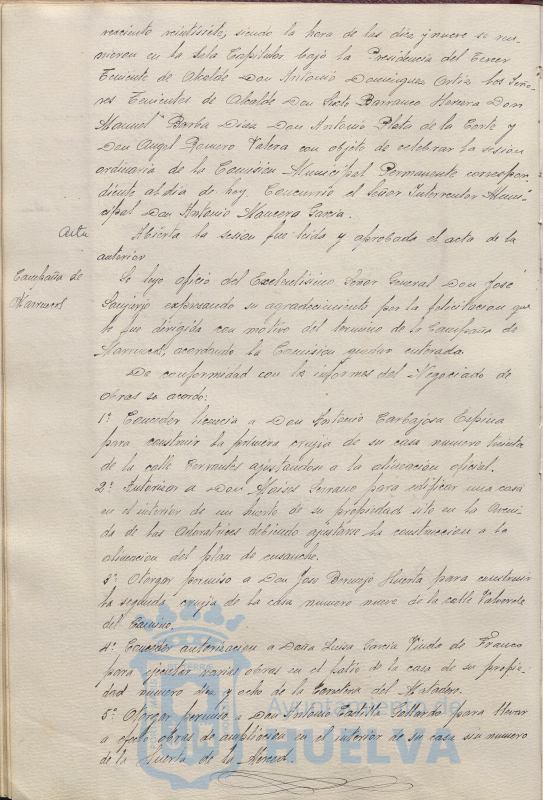 vecientos veintisiete, siendo la hora de las diez y nueve se reu-
nieron en la Sala Capitular bajo la Presidencia del Tercer
Teniente de Alcalde Don Antonio Dominguez Ortiz los Seño-
res Tenientes de Alcalde Don Sixto Barranco Herrera Don
Manuel Barba Diaz Don Antonio Plata de la Corte y
Don Angel Romero Valera con objeto de celebrar la sesion
ordinaria de la Comision Municipal Permanente correspon-
diente al dia de hoy. Concurrio el Señor Interventor Muni-
cipal Don Antonio Mancera Garcia.
Acta
Abierta la sesion fue leida y aprobada el acta de la
anterior
Campaña de
Marruecos
Se leyo oficio del Excelentisimo Señor General Don José
Sanjurjo expresando su agradecimiento por la felicitacion que
le fue dirigida con motivo del termino de la Campaña de
Marruecos, acordando la Comision quedar enterada.
De conformidad con los informes del Negociado de
obras se acordó:
1º Conceder licencia a Don Antonio Carbajosa Espina
para construir la primera crujia de su casa numero treinta
de la calle Cervantes ajustandose a la alineación oficial.
2º Autorizar a Don Moises Serrano para edificar una casa
en el interior de un huerto de su propiedad sito en la Aveni-
da de las Adoratrices debiendo ajustarse la construccion a la
alineacion del plan de ensanche.
3º Otorgar permiso a Don José Bermejo Huerta para construir
la segunda crujia de la casa numero nueve de la calle Valverde
del Camino.
4º Conceder autorizacion a Doña Luisa Garcia Viuda de Franco
para ejecutar varias obras en el patio de la casa de su propie-
dad numero diez y ocho de la Carretera del Matadero.
5º Otorgar permiso a Don Antonio Padilla Gallardo para llevar
a efecto obras de ampliacion en el interior de su casa sin numero
de la Huerta de la Merced.
Ayuntamiento de
HUELVA